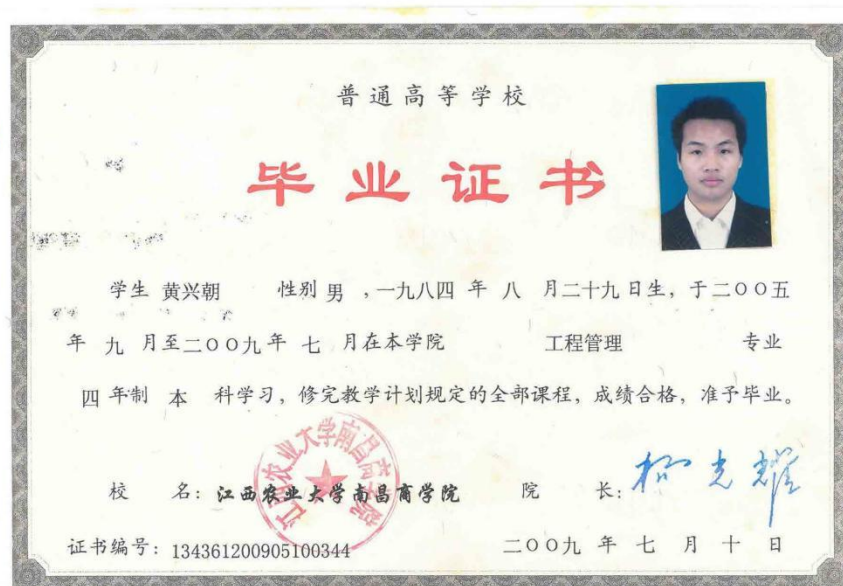 普通高等学校
毕业证书
学生 黄兴朝 性别 男 ,一九八四 年 八 月二十九日生, 于二〇〇五
年 九 月至二〇〇九年 七 月在本学院 工程管理 专业
四 年制 本 科学习, 修完教学计划规定的全部课程, 成绩合格, 准予毕业。
江西农业大学南昌商学院
校 名: 江西农业大学南昌商学院 院 长: 柳光耀
证书编号: 134361200905100344 二〇〇九 年 七 月 十 日